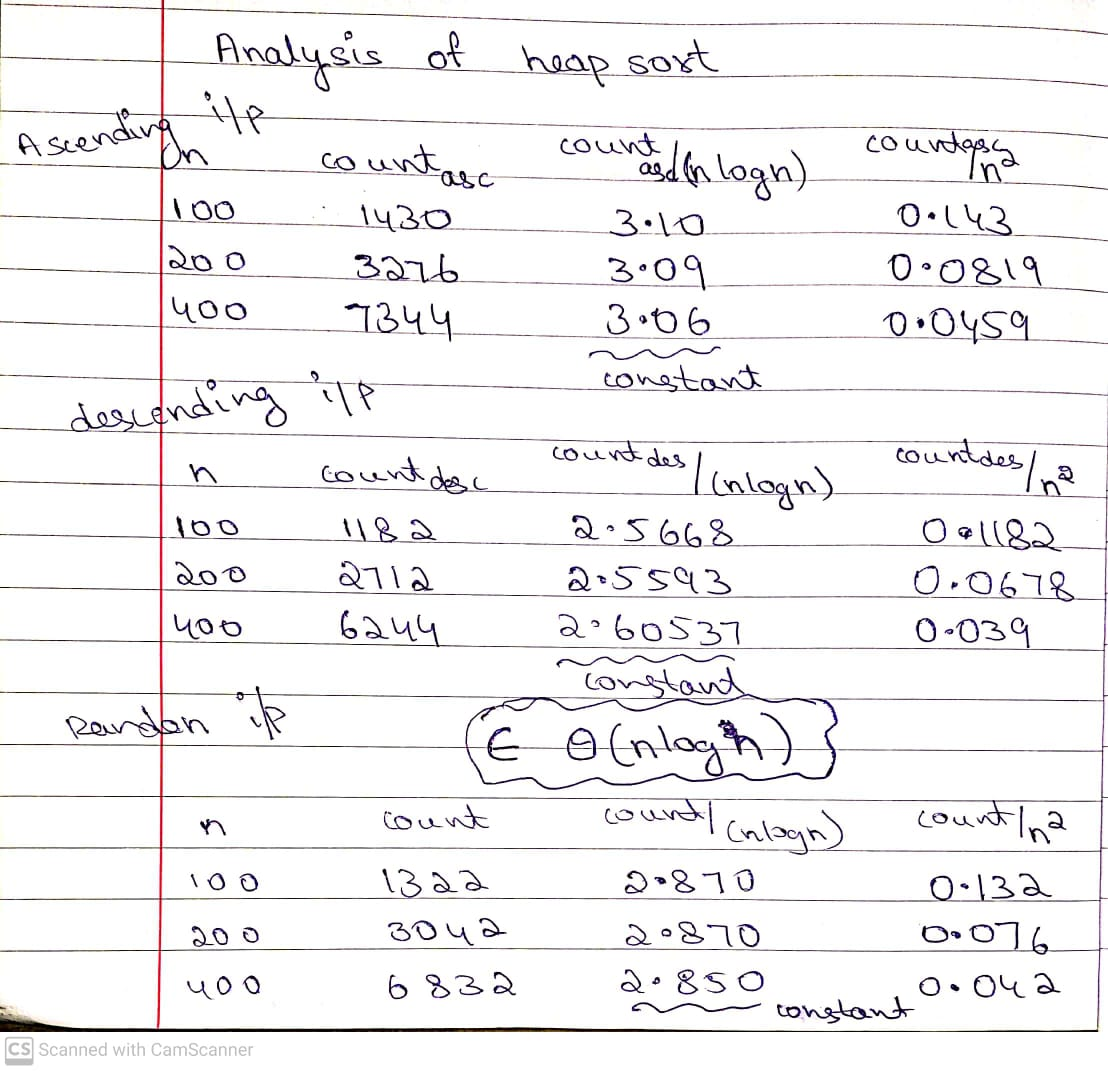 Analysis of heap sort
Ascending i/p
n count asc count asd/(n logn) count asc/n²
100 1430 3.10 0.143
200 3276 3.09 0.0819
400 7344 3.06 0.0459
constant
descending i/p
n count desc count des/(nlogn) count des/n²
100 1182 2.5668 0.1182
200 2712 2.5593 0.0678
400 6244 2.60537 0.039
constant
Randon i/p
∈ θ(nlogn)}
n count count/(nlogn) count/n²
100 1322 2.870 0.132
200 3042 2.870 0.076
400 6832 2.850 0.042
constant
CS Scanned with CamScanner